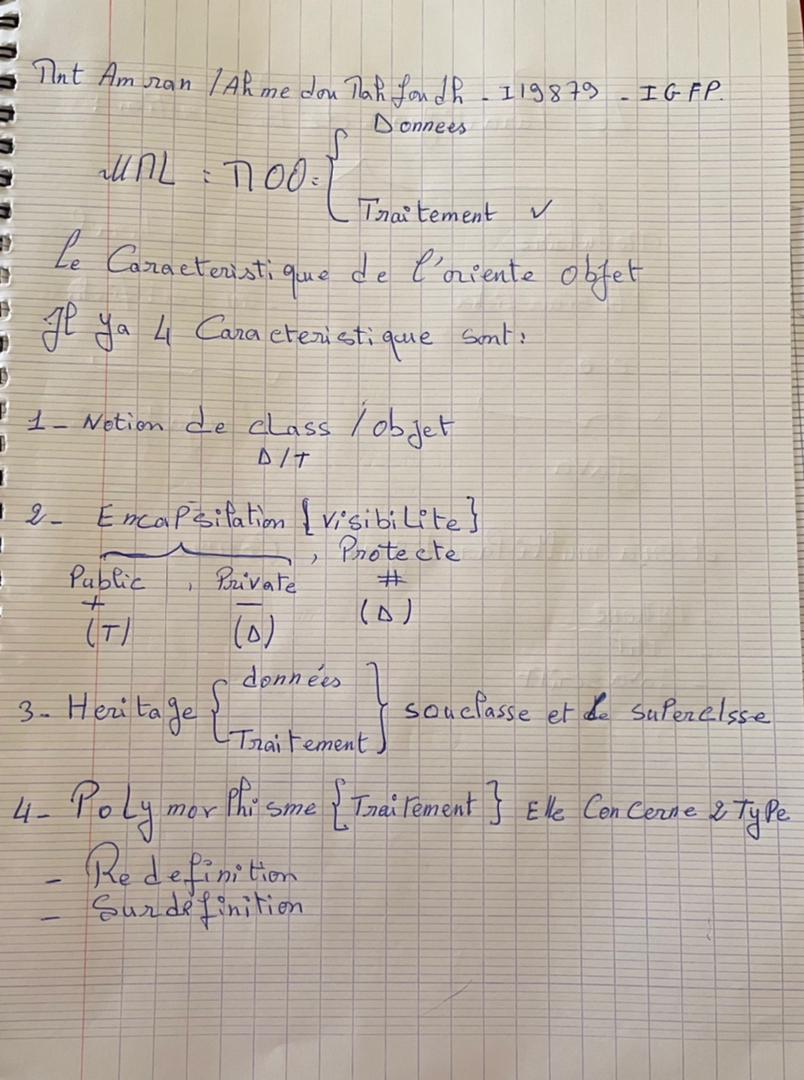 Mnt Amran /Ahmedou Mahfoudh - I19879 - IGFP.
Donnees
UML : MOO :
Traitement ✓
Le Caracteristique de l'oriente objet
Il ya 4 Caracteristique sont :
1 - Notion de class / objet
D/T
2 - Encapsilation {visibilite}
Public , Private , Protecte
+ - #
(T) (D) (D)
données
3 - Heritage { } souclasse et de superclsse
Traitement
4 - Polymorphisme {Traitement} Elle Concerne 2 Type
- Redefinition
- Surdéfinition